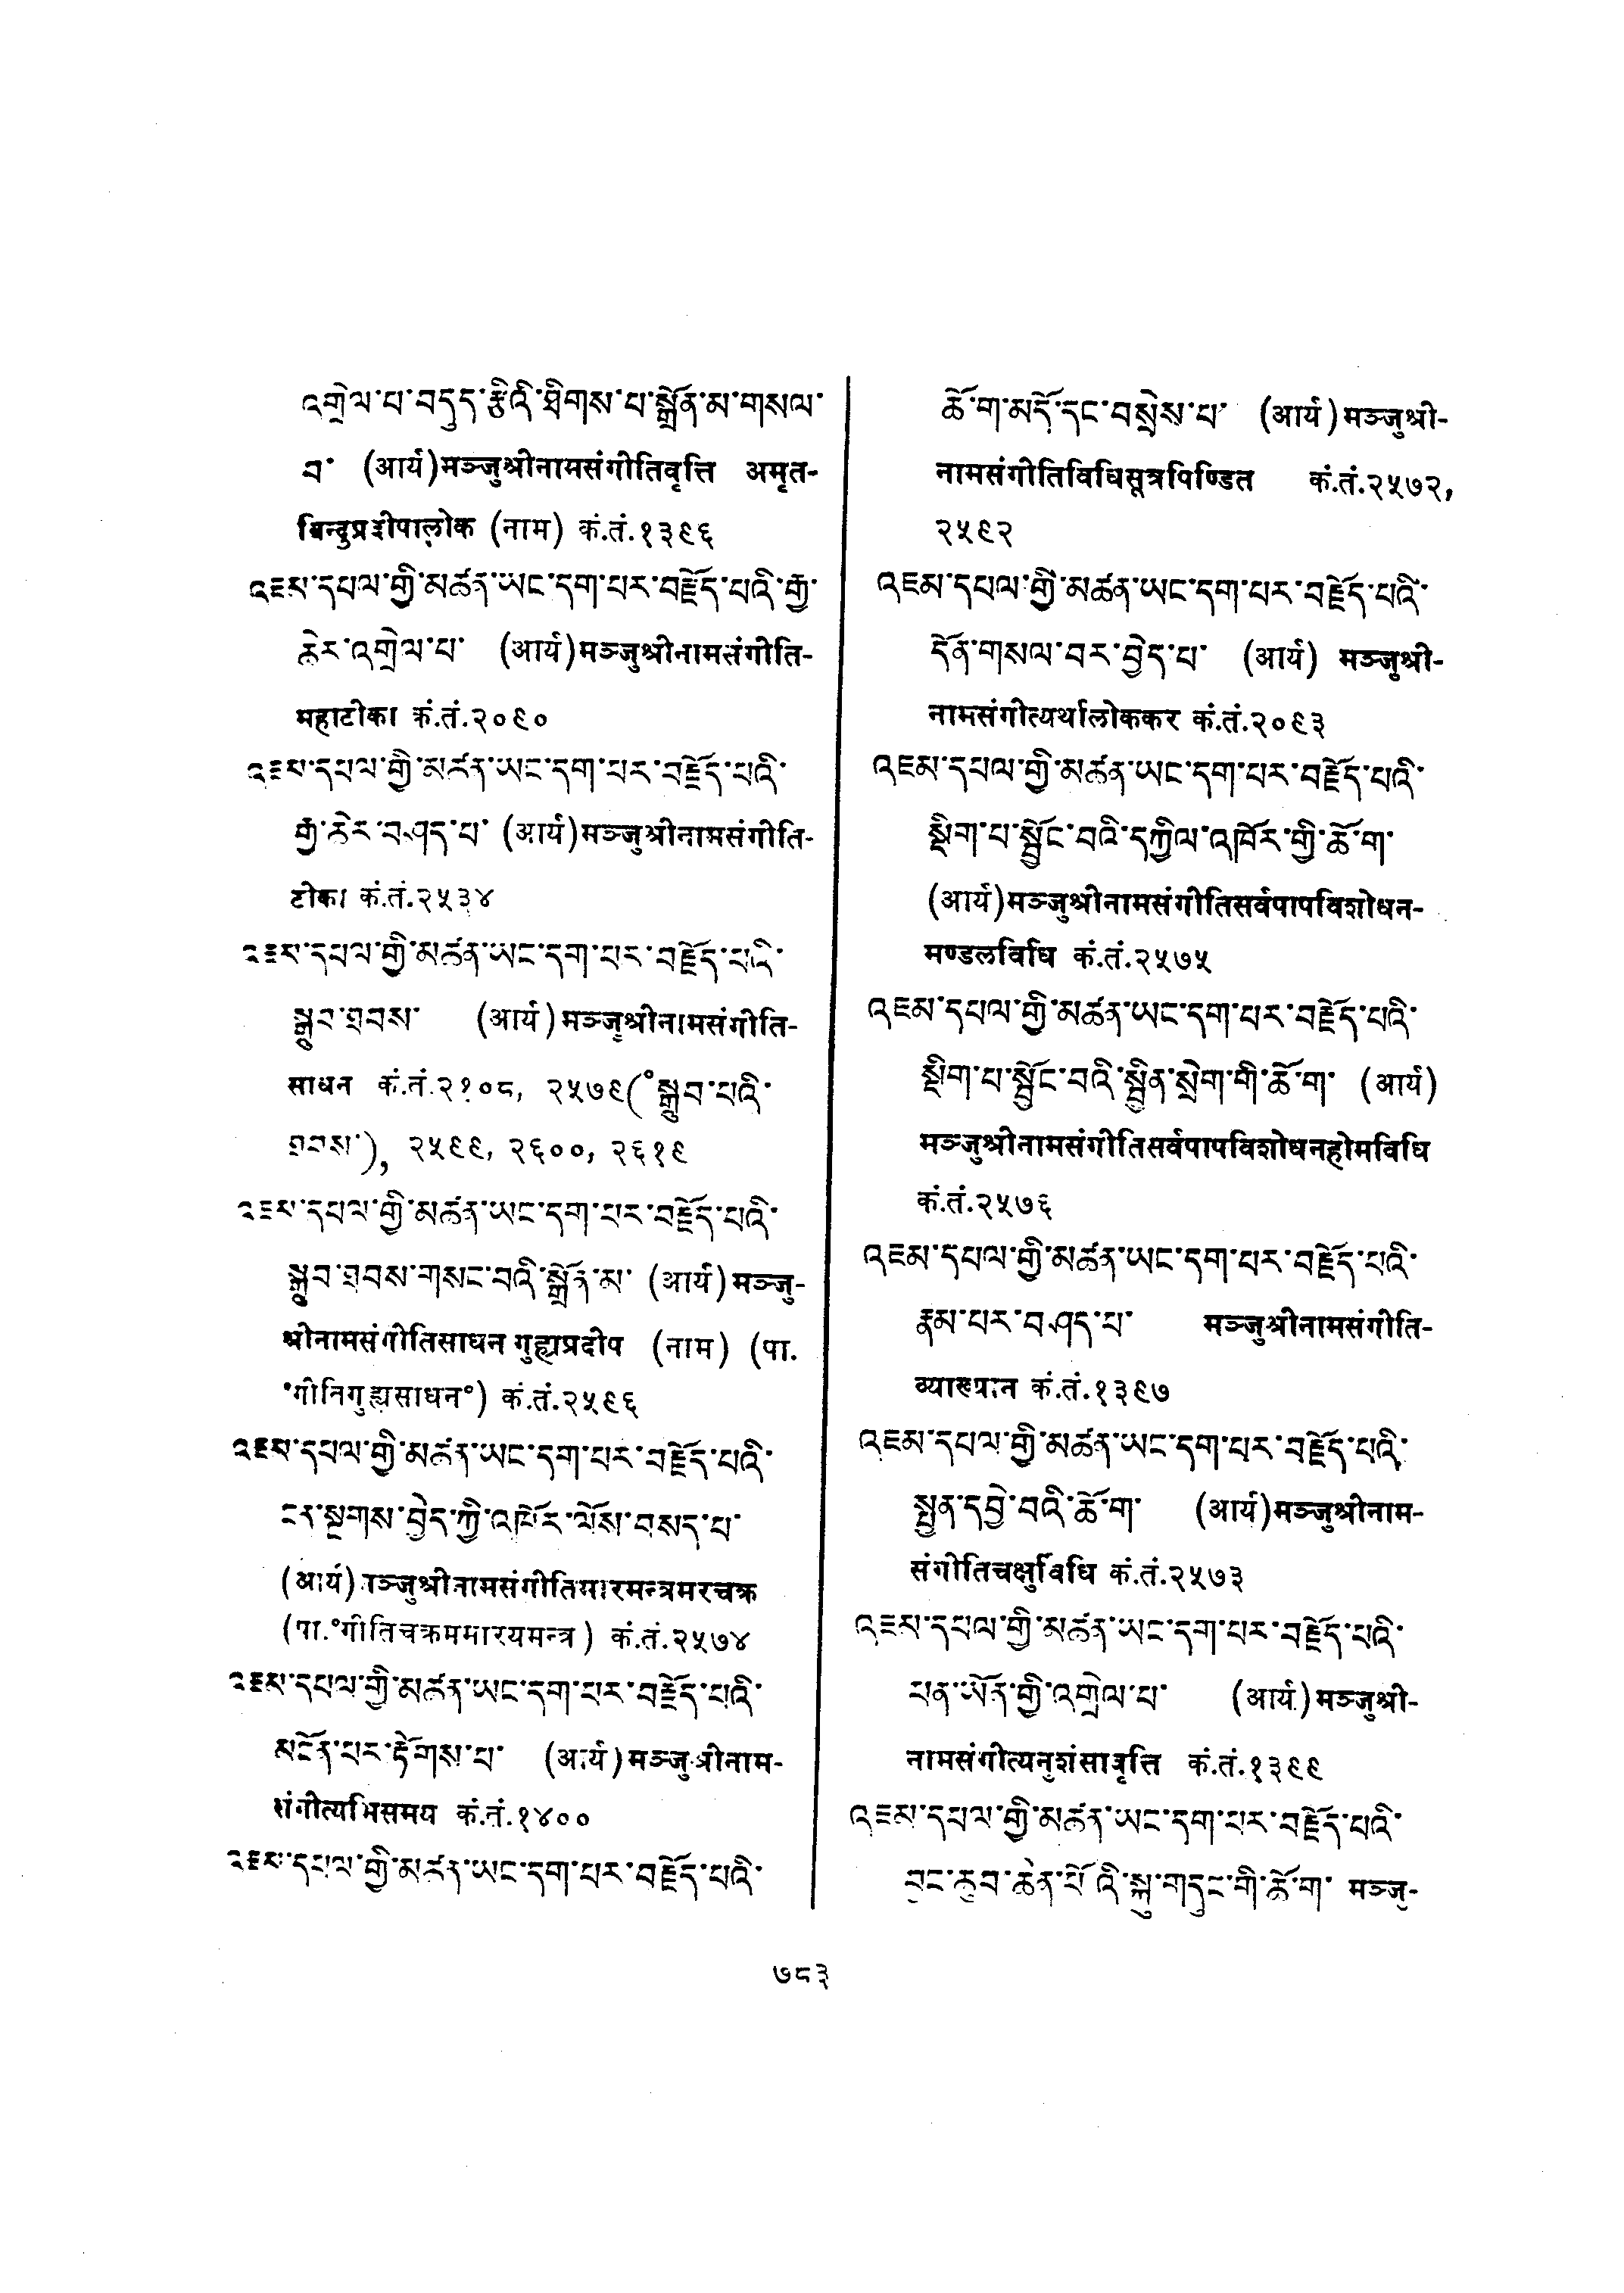 འགྲེལ་པ་བདུད་རྩིའི་ཐིགས་པ་སྒྲོན་མ་གསལ་
བ་ (आर्य)मञ्जुश्रीनामसंगीतिवृत्ति अमृत-
बिन्दुप्रदीपालोक (नाम) कं.तं.१३९६
འཇམ་དཔལ་གྱི་མཚན་ཡང་དག་པར་བརྗོད་པའི་རྒྱ་
ཆེར་འགྲེལ་པ་ (आर्य)मञ्जुश्रीनामसंगीति-
महाटीका कं.तं.२०९०
འཇམ་དཔལ་གྱི་མཚན་ཡང་དག་པར་བརྗོད་པའི་
རྒྱ་ཆེར་བཤད་པ་ (आर्य)मञ्जुश्रीनामसंगीति-
टीका कं.तं.२५३४
འཇམ་དཔལ་གྱི་མཚན་ཡང་དག་པར་བརྗོད་པའི་
སྒྲུབ་ཐབས་ (आर्य)मञ्जुश्रीनामसंगीति-
साधन कं.तं.२१०८, २५७९(°སྒྲུབ་པའི་
ཐབས་), २५९९, २६००, २६१९
འཇམ་དཔལ་གྱི་མཚན་ཡང་དག་པར་བརྗོད་པའི་
སྒྲུབ་ཐབས་གསང་བའི་སྒྲོན་མ་ (आर्य)मञ्जु-
श्रीनामसंगीतिसाधन गुह्यप्रदीप (नाम) (पा.
°गीतिगुह्यसाधन°) कं.तं.२५९६
འཇམ་དཔལ་གྱི་མཚན་ཡང་དག་པར་བརྗོད་པའི་
ངན་སྔགས་བྱེད་ཀྱི་འཁོར་ལོས་བསད་པ་
(आर्य)मञ्जुश्रीनामसंगीतिमारमन्त्रमरचक्र
(पा.°गीतिचक्रममारयमन्त्र) कं.तं.२५७४
འཇམ་དཔལ་གྱི་མཚན་ཡང་དག་པར་བརྗོད་པའི་
མངོན་པར་རྟོགས་པ་ (आर्य)मञ्जुश्रीनाम-
संगीत्यभिसमय कं.तं.१४००
འཇམ་དཔལ་གྱི་མཚན་ཡང་དག་པར་བརྗོད་པའི་
ཆོ་ག་མདོ་དང་བསྲེས་པ་ (आर्य)मञ्जुश्री-
नामसंगीतिविधिसूत्रपिण्डित कं.तं.२५७२,
२५९२
འཇམ་དཔལ་གྱི་མཚན་ཡང་དག་པར་བརྗོད་པའི་
དོན་གསལ་བར་བྱེད་པ་ (आर्य) मञ्जुश्री-
नामसंगीत्यर्थालोककर कं.तं.२०९३
འཇམ་དཔལ་གྱི་མཚན་ཡང་དག་པར་བརྗོད་པའི་
སྡིག་པ་སྦྱོང་བའི་དཀྱིལ་འཁོར་གྱི་ཆོ་ག་
(आर्य)मञ्जुश्रीनामसंगीतिसर्वपापविशोधन-
मण्डलविधि कं.तं.२५७५
འཇམ་དཔལ་གྱི་མཚན་ཡང་དག་པར་བརྗོད་པའི་
སྡིག་པ་སྦྱོང་བའི་སྦྱིན་སྲེག་གི་ཆོ་ག་ (आर्य)
मञ्जुश्रीनामसंगीतिसर्वपापविशोधनहोमविधि
कं.तं.२५७६
འཇམ་དཔལ་གྱི་མཚན་ཡང་དག་པར་བརྗོད་པའི་
རྣམ་པར་བཤད་པ་ मञ्जुश्रीनामसंगीति-
व्याख्यान कं.तं.१३९७
འཇམ་དཔལ་གྱི་མཚན་ཡང་དག་པར་བརྗོད་པའི་
སྤྱན་དབྱེ་བའི་ཆོ་ག་ (आर्य)मञ्जुश्रीनाम-
संगीतिचक्षुर्विधि कं.तं.२५७३
འཇམ་དཔལ་གྱི་མཚན་ཡང་དག་པར་བརྗོད་པའི་
ཕན་ཡོན་གྱི་འགྲེལ་པ་ (आर्य)मञ्जुश्री-
नामसंगीत्यनुशंसावृत्ति कं.तं.१३९९
འཇམ་དཔལ་གྱི་མཚན་ཡང་དག་པར་བརྗོད་པའི་
བྱང་ཆུབ་ཆེན་པོའི་སྐུ་གདུང་གི་ཆོ་ག་ मञ्जु-
७८३